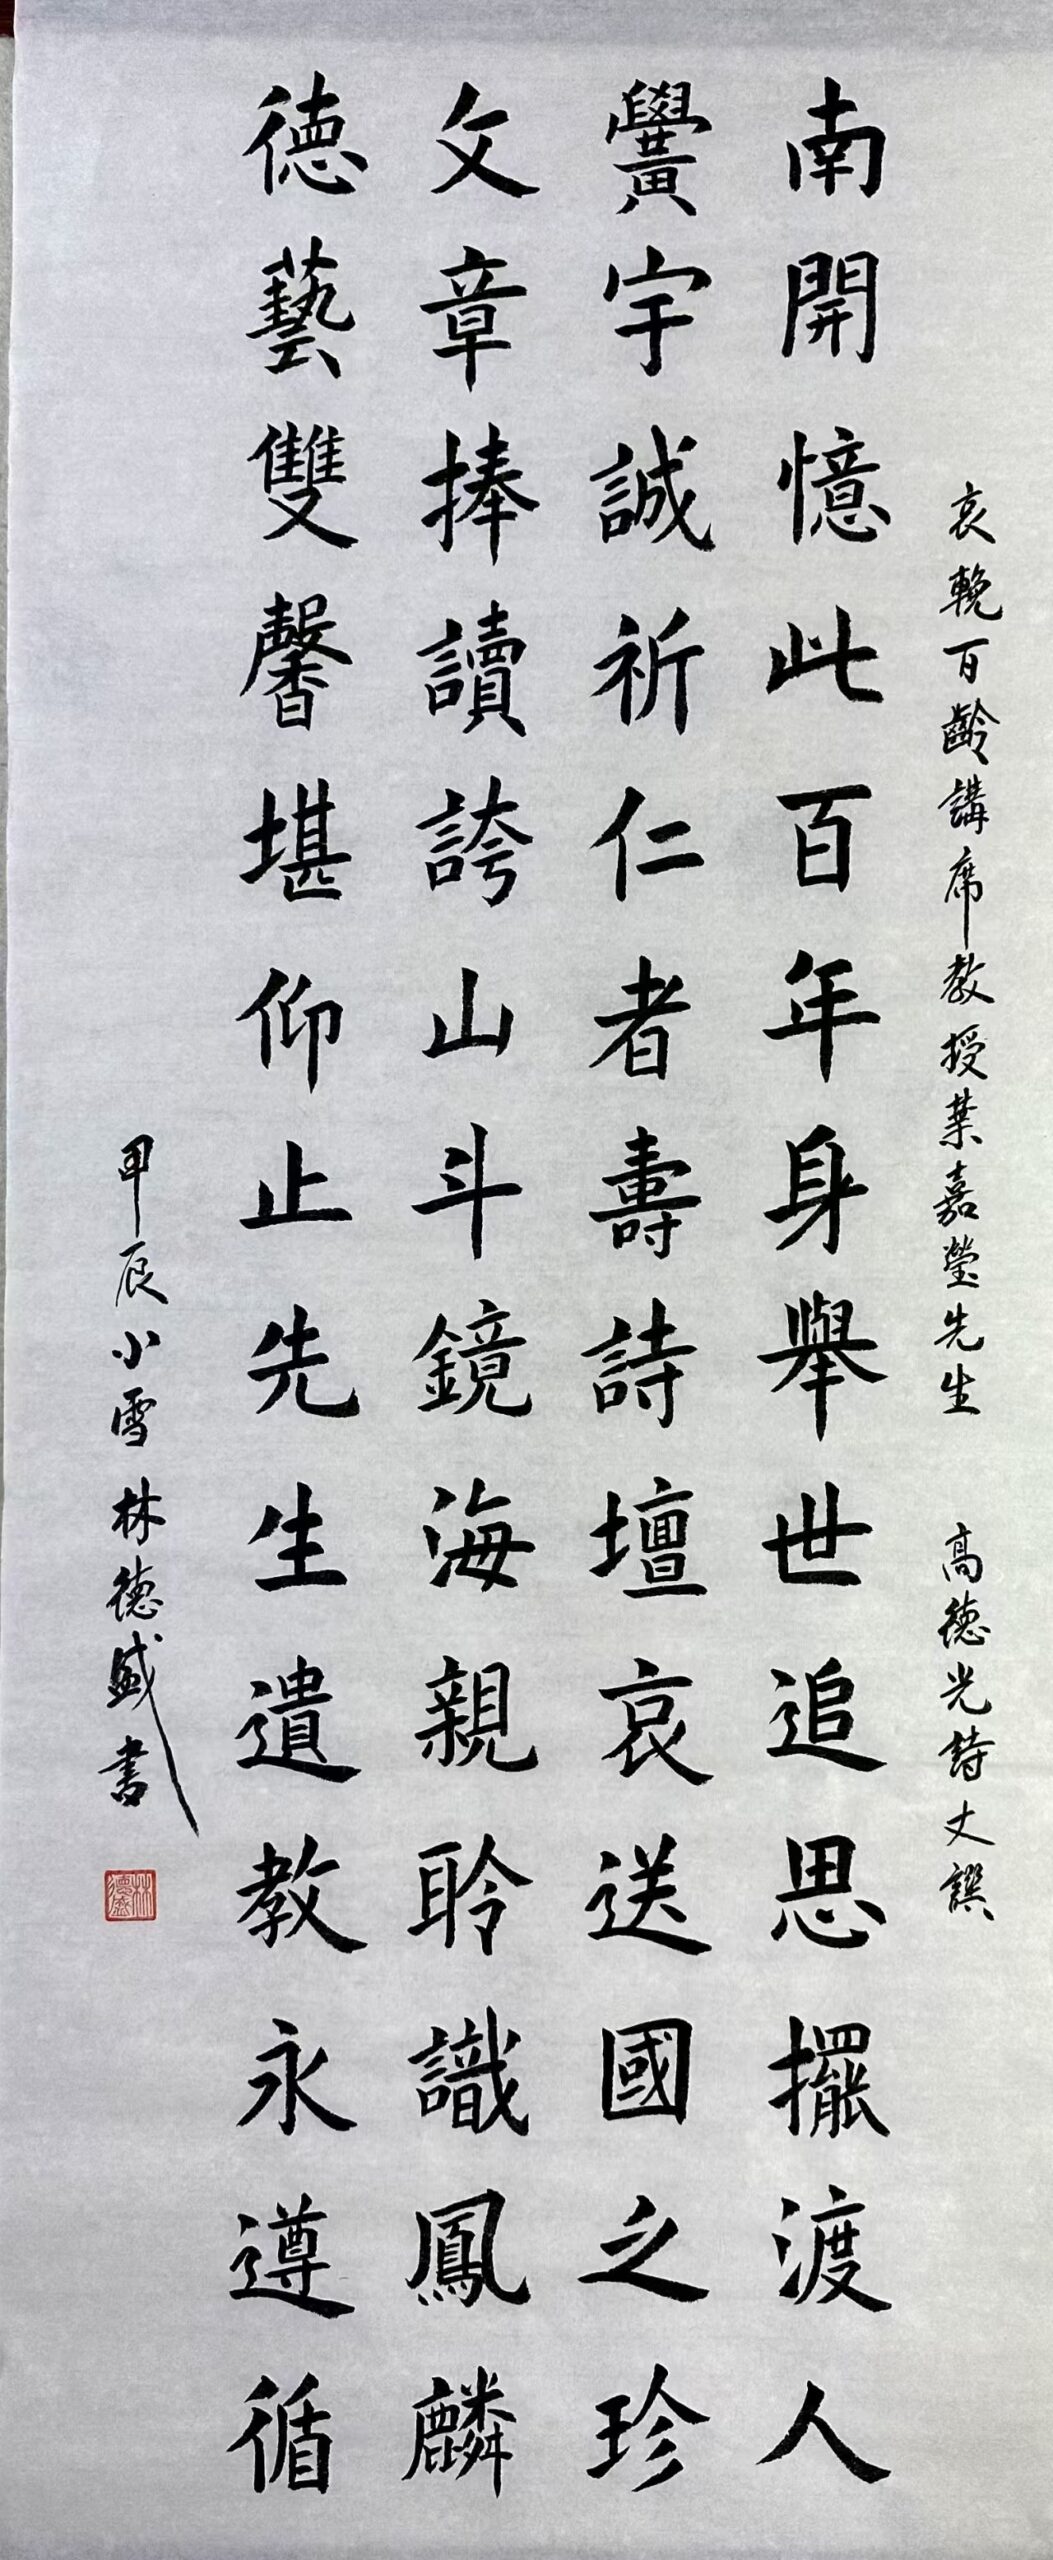 哀輓百齡講席教授葉嘉瑩先生 高德光詩丈譔
南開憶此百年身舉世追思擺渡人
黌宇誠祈仁者壽詩壇哀送國之珍
文章捧讀誇山斗鏡海親聆識鳳麟
德藝雙馨堪仰止先生遺教永遵循
甲辰小雪林德盛書
林德盛